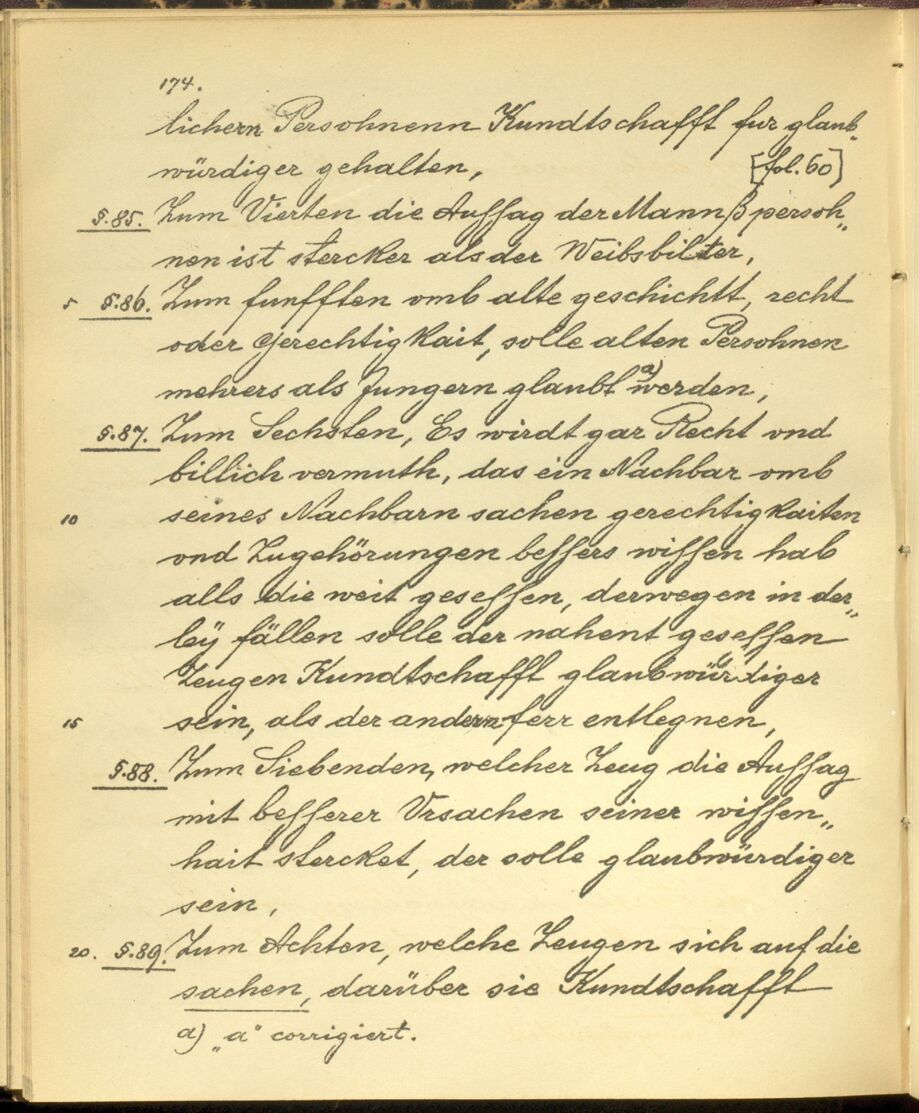 174.
lichern Persohnenn Kundtschafft fur glaub„
würdiger gehalten, [fol. 60]
§.85. Zum Vierten die Aussag der Mannßpersoh„
nen ist stercker als der Weibsbilter,
5 §.86. Zum funfften vmb alte geschichtt, recht
oder Gerechtigkait, solle alten Persohnen
mehrers als Jungern glaubt a) werden,
§.87. Zum Sechsten, Es wirdt gar Recht vnd
billich vermuth, das ein Nachbar vmb
10 seines Nachbarn sachen gerechtigkaiten
vnd Zugehörungen bessers wissen hab
alls die weit gesessen, derwegen in der„
leÿ fällen solle der nahent gesessen
Zeugen Kundtschafft glaubwürdiger
15 sein, als der andern ferr entlegnen,
§.88. Zum Siebenden, welcher Zeug die Aussag
mit besserer Vrsachen seiner wissen„
hait stercket, der solle glaubwürdiger
sein,
20. §.89. Zum Achten, welche Zeugen sich auf die
sachen, darüber sie Kundtschafft
a) „a“ corrigiert.